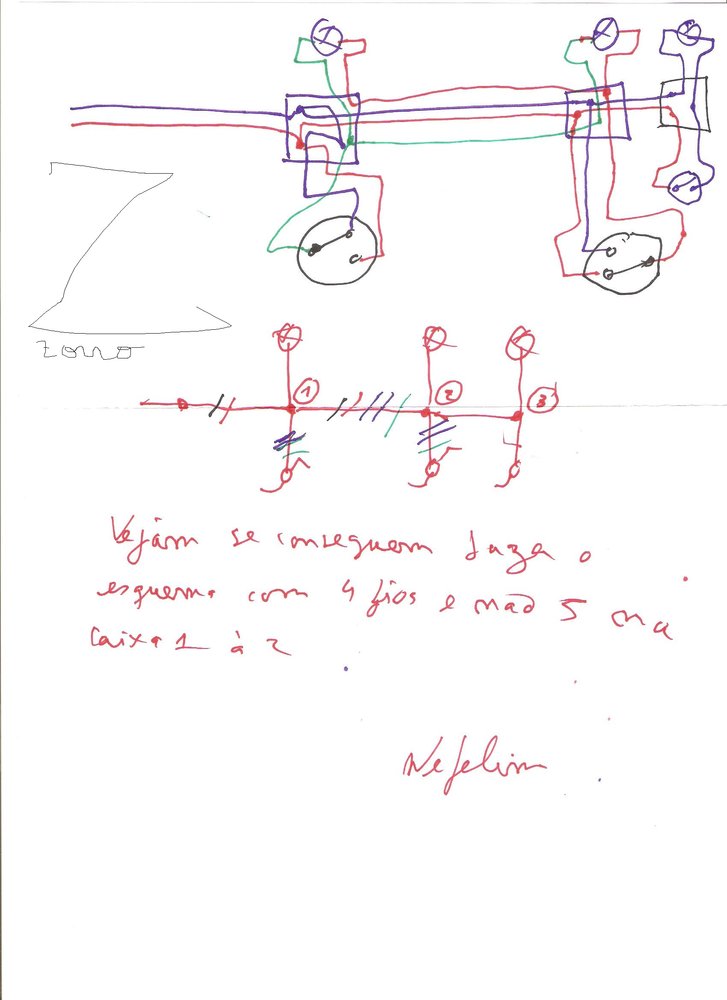 zorro
1 2 3
Vejam se conseguem fazer o
esquema com 4 fios e não 5 na
caixa 1 à 2
Nefelim